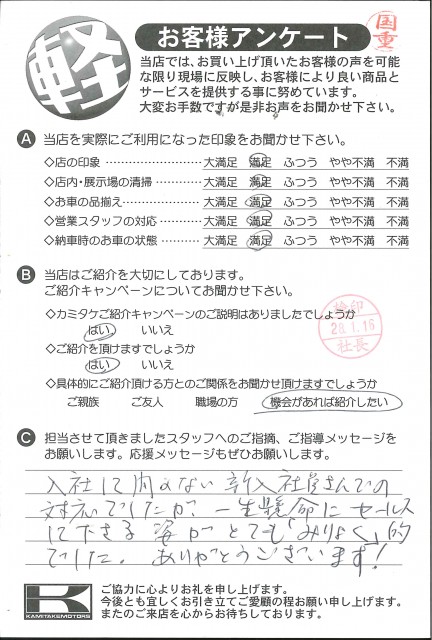 軽
お客様アンケート
国重
当店では、お買い上げ頂いたお客様の声を可能
な限り現場に反映し、お客様により良い商品と
サービスを提供する事に努めています。
大変お手数ですが是非お声をお聞かせ下さい。
A 当店を実際にご利用になった印象をお聞かせ下さい。
◇店の印象 ………………… 大満足 満足 ふつう やや不満 不満
◇店内・展示場の清掃 ………… 大満足 満足 ふつう やや不満 不満
◇お車の品揃え ……………… 大満足 満足 ふつう やや不満 不満
◇営業スタッフの対応 ………… 大満足 満足 ふつう やや不満 不満
◇納車時のお車の状態 ………… 大満足 満足 ふつう やや不満 不満
B 当店はご紹介を大切にしております。
ご紹介キャンペーンについてお聞かせ下さい。
◇カミタケご紹介キャンペーンのご説明はありましたでしょうか
はい いいえ
◇ご紹介を頂けますでしょうか
はい いいえ
検印
28.1.16
社長
◇具体的にご紹介頂ける方とのご関係をお聞かせ頂けますでしょうか
ご親族 ご友人 職場の方 機会があれば紹介したい
C 担当させて頂きましたスタッフへのご指摘、ご指導メッセージを
お願いします。応援メッセージもぜひお願いします。
入社して間もない新入社員さんでの
対応でしたが 一生懸命にセールス
して下さる姿がとても「みりょく」的
でした。ありがとうございます!
K
KAMITAKEMOTORS
ご協力に心よりお礼を申し上げます。
今後とも宜しくお引き立てご愛顧の程お願い申し上げます。
またのご来店を心からお待ちしております。